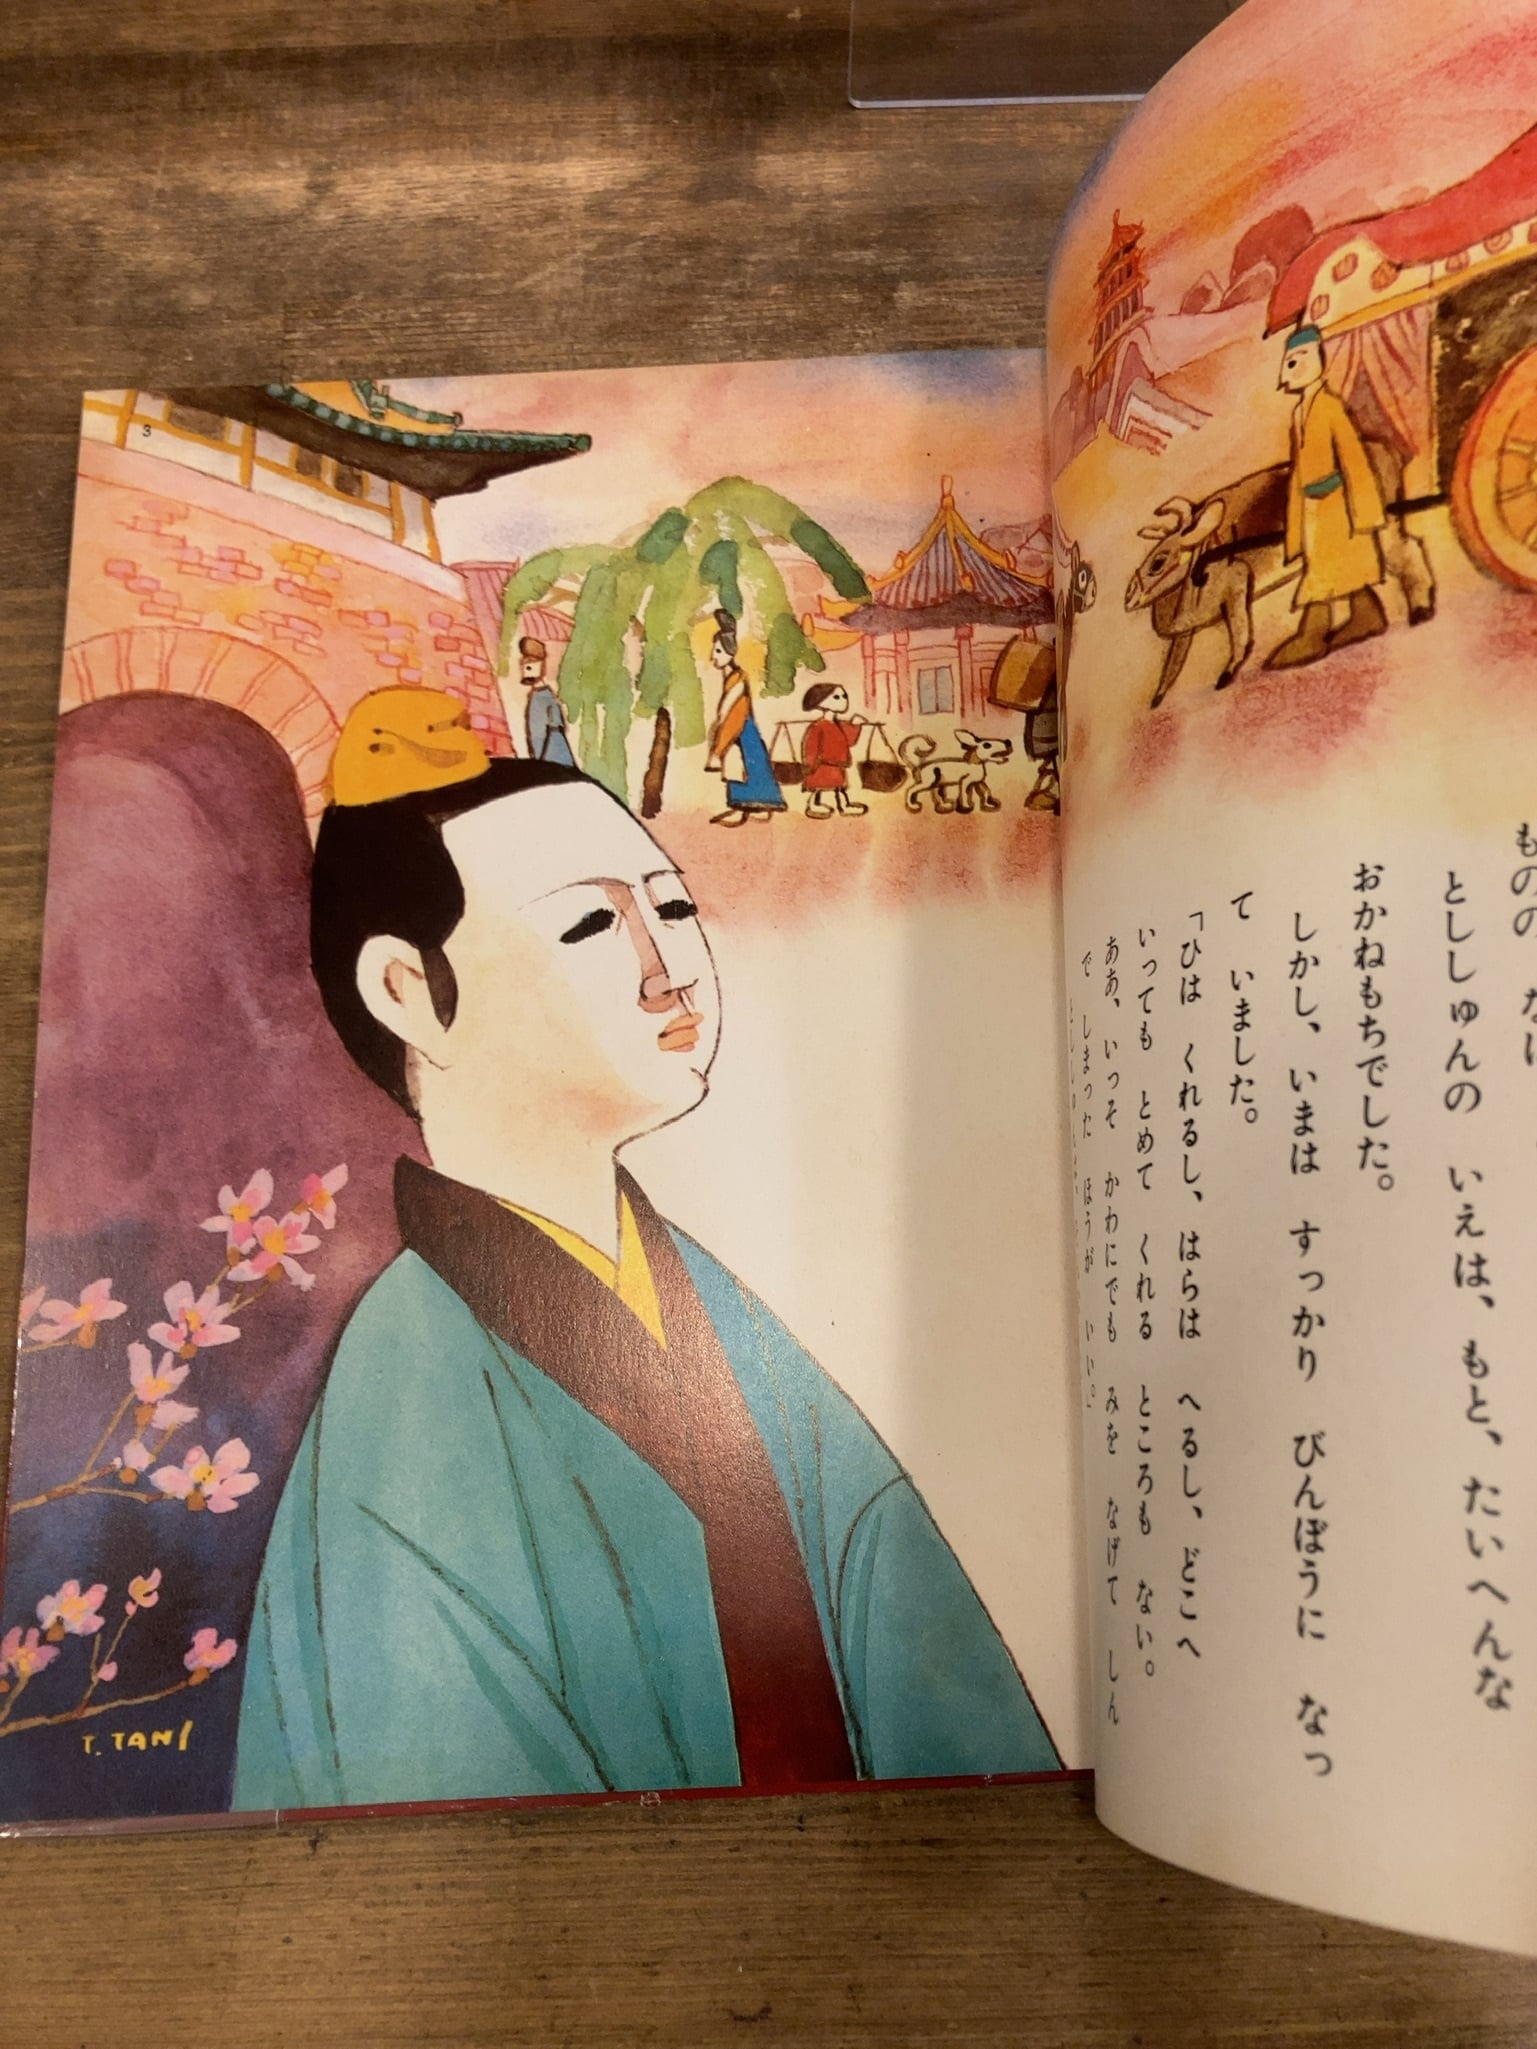 3
ものの
とししゅんの　いえは、もと、たいへんな
おかねもちでした。
しかし、いまは　すっかり　びんぼうに　なっ
て　いました。
「ひは　くれるし、はらは　へるし、どこへ
いっても　とめて　くれる　ところも　ない。
ああ、いっそ　かわにでも　みを　なげて　しん
で　しまった　ほうが　いい。」
T. TANI